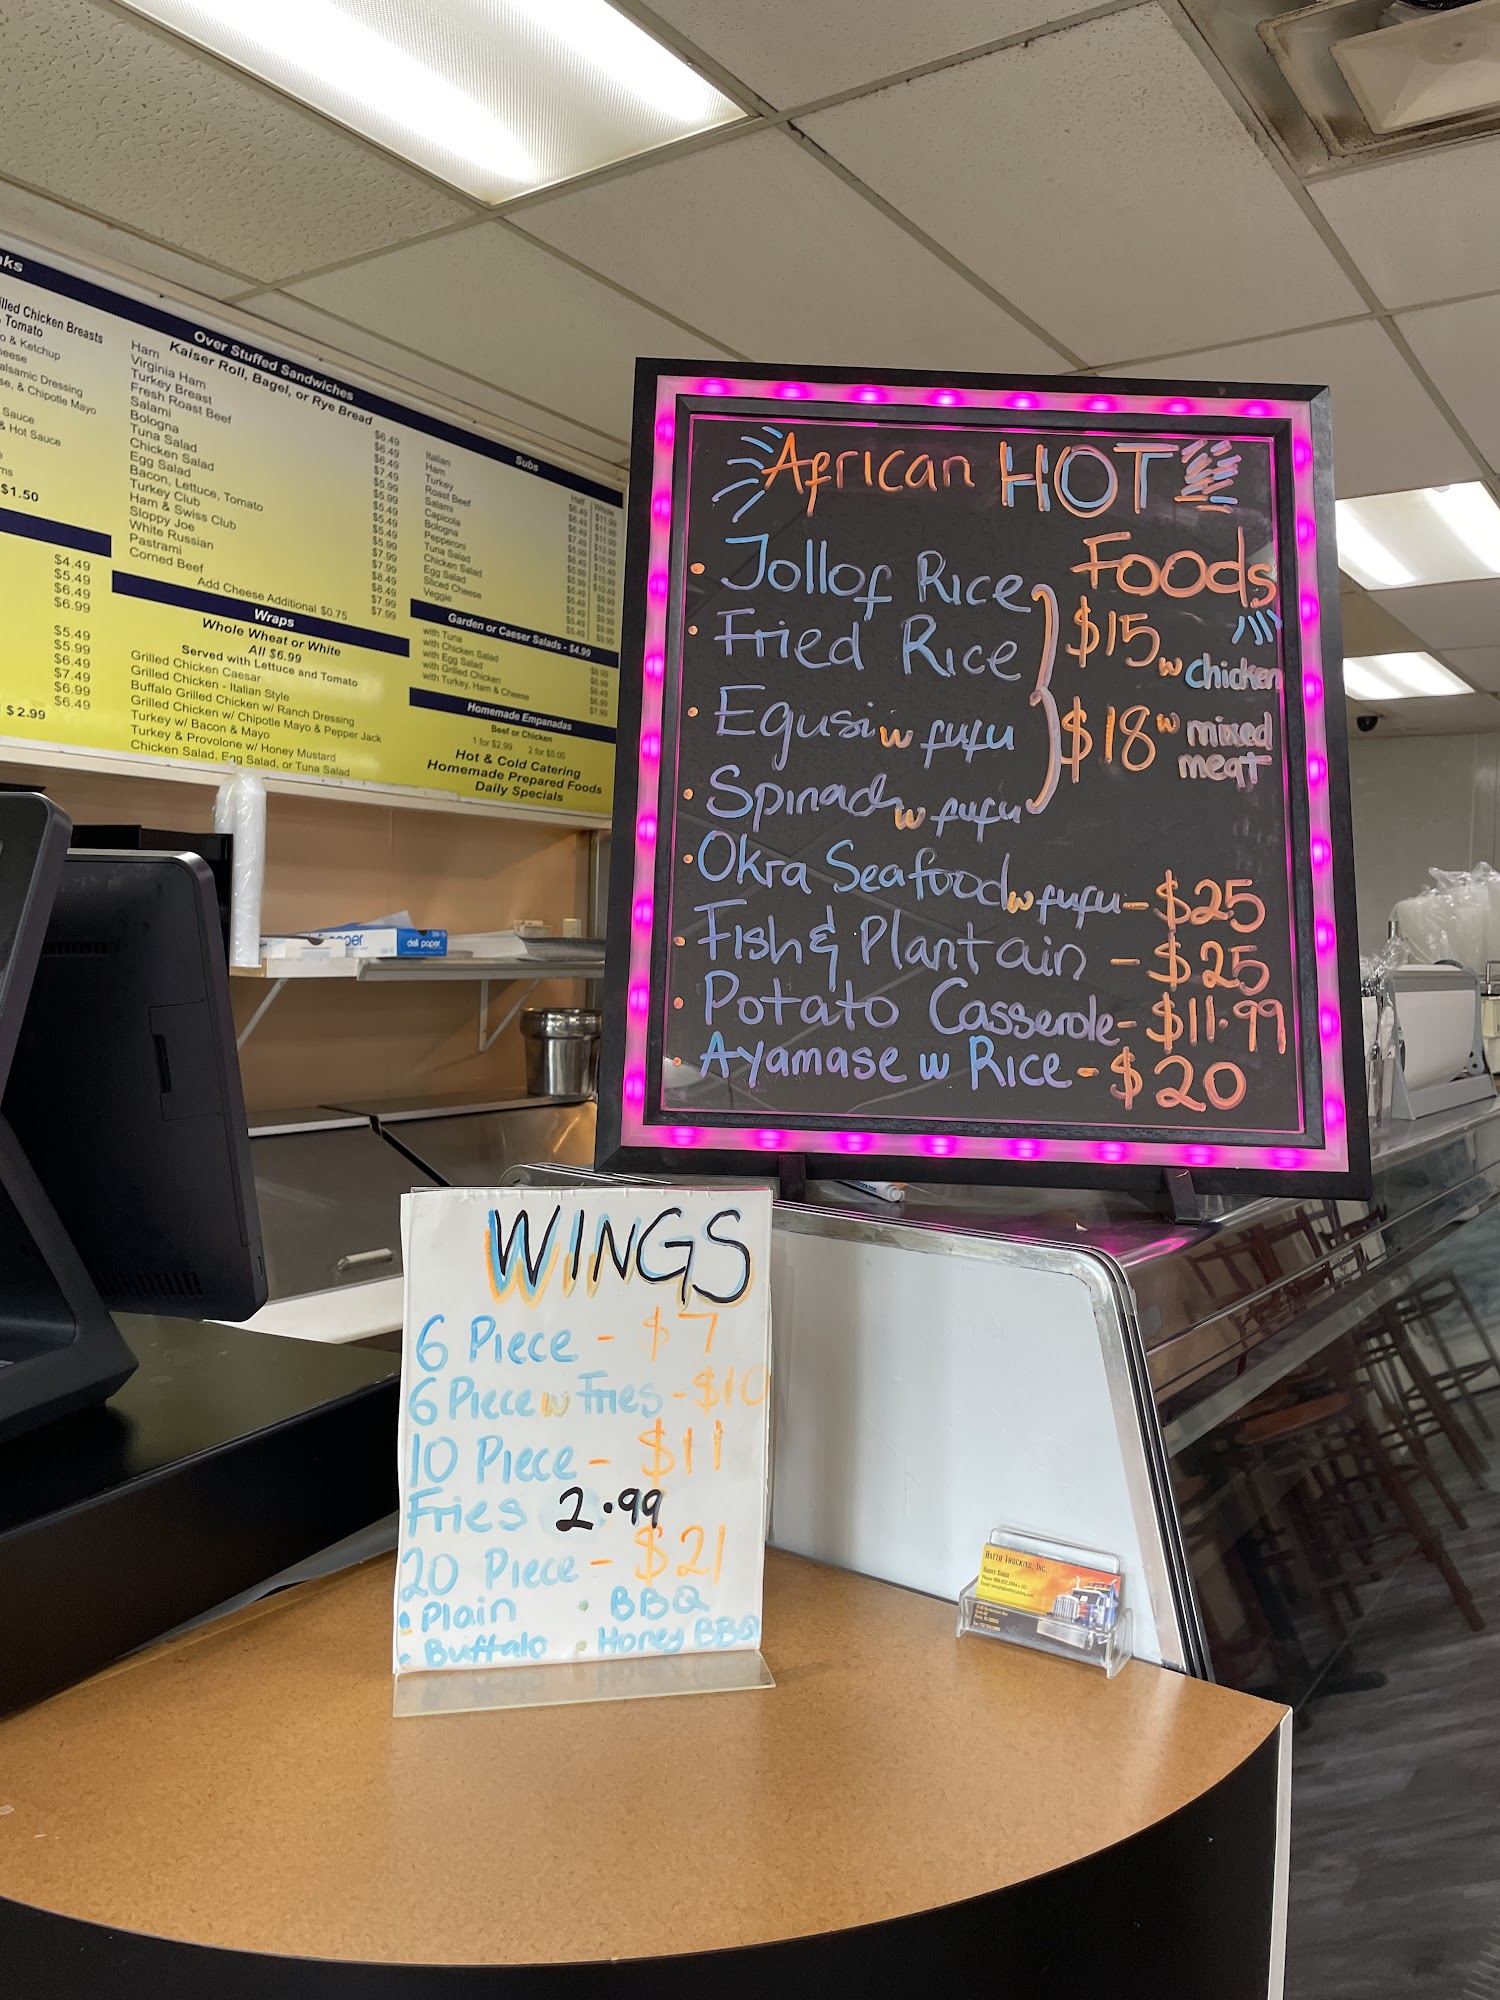 African HOT
Foods
• Jollof Rice
• Fried Rice
$15 w chicken
• Egusi w fufu
$18 w mixed
meat
• Spinach w fufu
• Okra Seafood w fufu - $25
• Fish & Plantain - $25
• Potato Casserole - $11.99
• Ayamase w Rice - $20
WINGS
6 Piece - $7
6 Piece w Fries - $10
10 Piece - $11
Fries 2.99
20 Piece - $21
• Plain • BBQ
• Buffalo • Honey BBQ
illed Chicken Breasts
Tomato
o & Ketchup
eese
alsamic Dressing
se, & Chipotle Mayo
Sauce
& Hot Sauce
$1.50
$4.49
$5.49
$6.49
$6.99
$5.49
$5.99
$6.49
$7.49
$6.99
$6.49
$2.99
Over Stuffed Sandwiches
Kaiser Roll, Bagel, or Rye Bread
Ham
Virginia Ham
Turkey Breast
Fresh Roast Beef
Salami
Bologna
Tuna Salad
Chicken Salad
Egg Salad
Bacon, Lettuce, Tomato
Turkey Club
Ham & Swiss Club
Sloppy Joe
White Russian
Pastrami
Corned Beef
Add Cheese Additional $0.75
Wraps
Whole Wheat or White
All $6.99
Served with Lettuce and Tomato
Grilled Chicken Caesar
Grilled Chicken - Italian Style
Buffalo Grilled Chicken w/ Ranch Dressing
Grilled Chicken w/ Chipotle Mayo & Pepper Jack
Turkey w/ Bacon & Mayo
Turkey & Provolone w/ Honey Mustard
Chicken Salad, Egg Salad, or Tuna Salad
Subs
Half Whole
Italian
Ham
Turkey
Roast Beef
Salami
Capicola
Bologna
Pepperoni
Tuna Salad
Chicken Salad
Egg Salad
Sliced Cheese
Veggie
Garden or Caeser Salads - $4.99
with Tuna
with Chicken Salad
with Egg Salad
with Grilled Chicken
with Turkey, Ham & Cheese
Homemade Empanadas
Beef or Chicken
1 for $2.99 2 for $5.00
Hot & Cold Catering
Homemade Prepared Foods
Daily Specials
deli paper
Hatth Trucking, Inc.